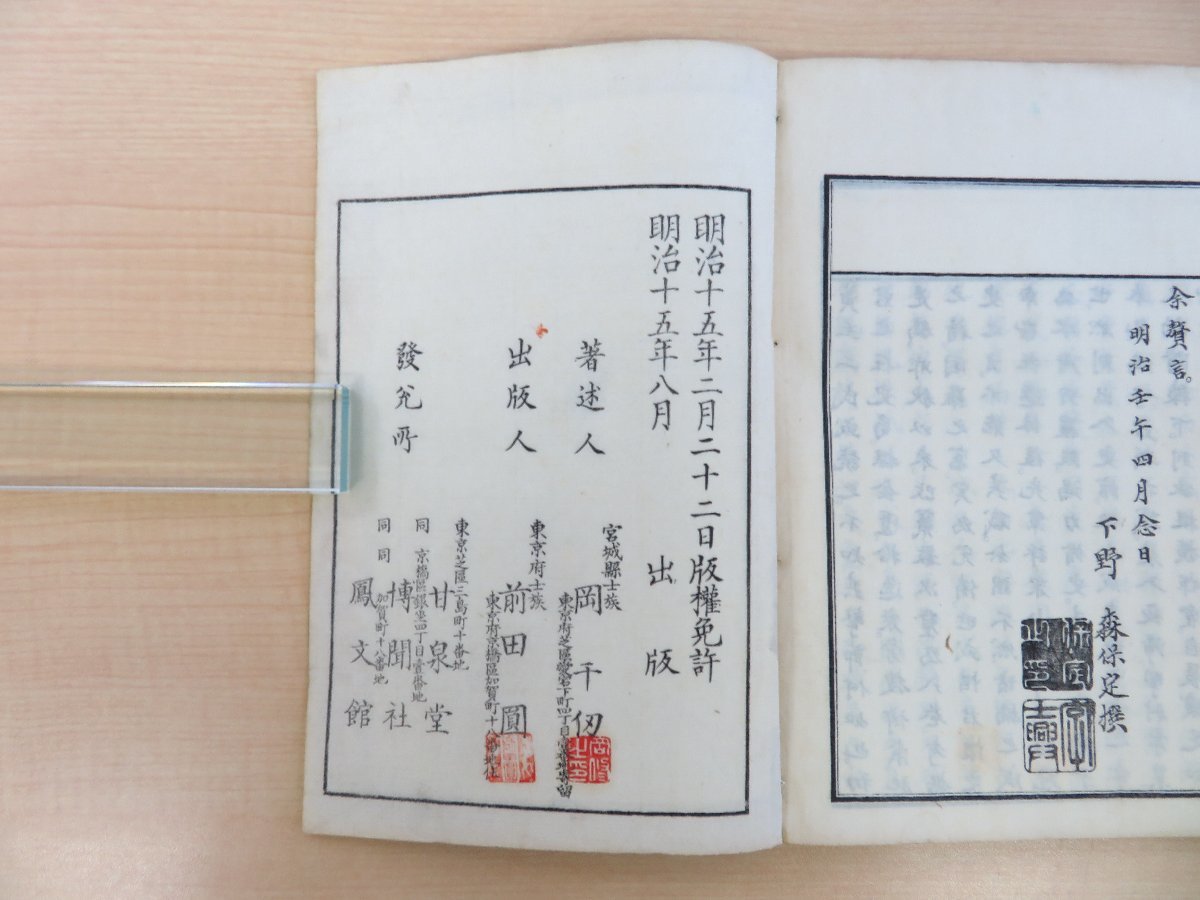 余贅言。
明治壬午四月念日
下野 森保定撰
明治十五年二月二十二日版權免許
明治十五年八月 出版
著述人
宮城縣士族
岡千仭
出版人
東京府士族
前田圓
東京府京橋區加賀町十八番地住
發兌所
東京芝區三島町十番地
甘泉堂
同 京橋區銀座四丁目壹番地
博聞社
同 同 加賀町十八番地
鳳文館